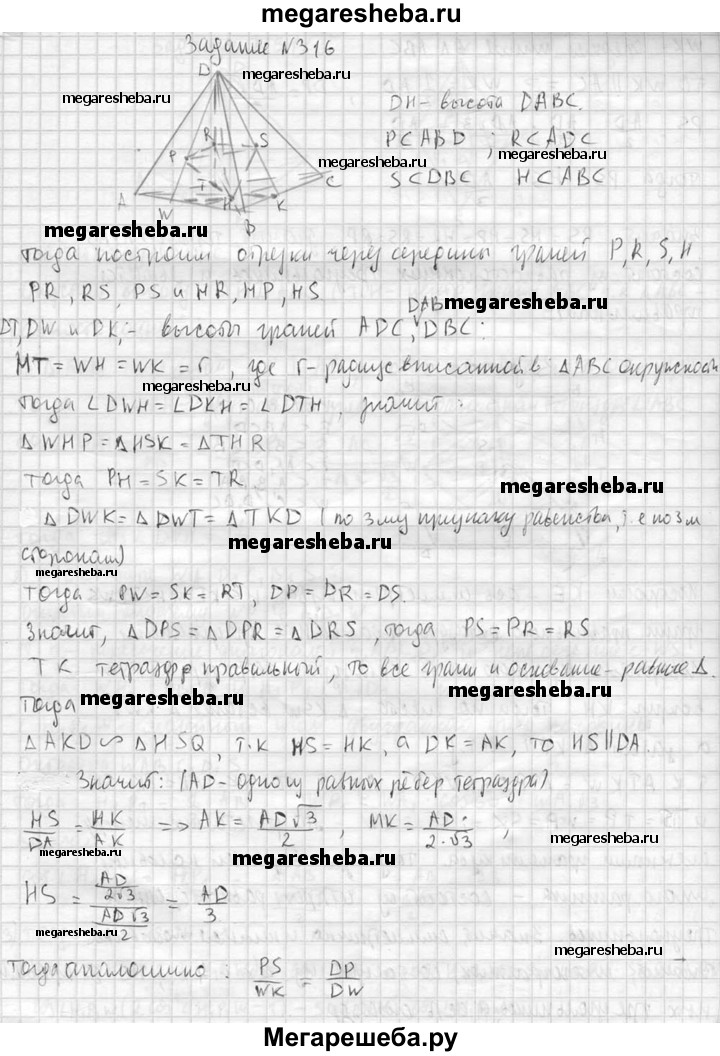 megaresheba.ru
Задание №316
megaresheba.ru
megaresheba.ru
D
DH - высота DABC.
P⊂ABD ; R⊂ADC
megaresheba.ru
megaresheba.ru
S⊂DBC H⊂ABC
R S P T H K C A W B
megaresheba.ru
megaresheba.ru
тогда построим отрезки через середины граней P, R, S, H
PR, RS, PS и HR, HP, HS
DAB
megaresheba.ru
DT, DW и DK, - высоты граней ADC, DBC:
MT = WH = WK = r, где r - радиус вписанной в ΔABC окружности
megaresheba.ru
тогда ∠DWH = ∠DKH = ∠DTH, значит:
ΔWHP = ΔHSK = ΔTHR
тогда PH = SK = TR.
megaresheba.ru
ΔDWK = ΔDWT = ΔTKD (по 3му признаку равенства, т.е по 3м
megaresheba.ru
сторонам)
megaresheba.ru
megaresheba.ru
тогда PW = SK = RT, DP = DR = DS.
Значит, ΔDPS = ΔDPR = ΔDRS, тогда PS = PR = RS
Т К тетраэдр правильный, то все грани и основание - равные Δ.
megaresheba.ru
megaresheba.ru
Тогда
ΔAKD ∽ ΔHSQ, т.к HS = HK, а DK = AK, то HS||DA.
Значит: (AD - одно из равных рёбер тетраэдра)
HS/DA = HK/AK => AK = AD√3/2, MK = AD·/2·√3,
megaresheba.ru
megaresheba.ru
HS = (AD/2√3)/(AD√3/2) = AD/3
megaresheba.ru
megaresheba.ru
Тогда аналогично: PS/WK = DP/DW
Мегарешеба.ру